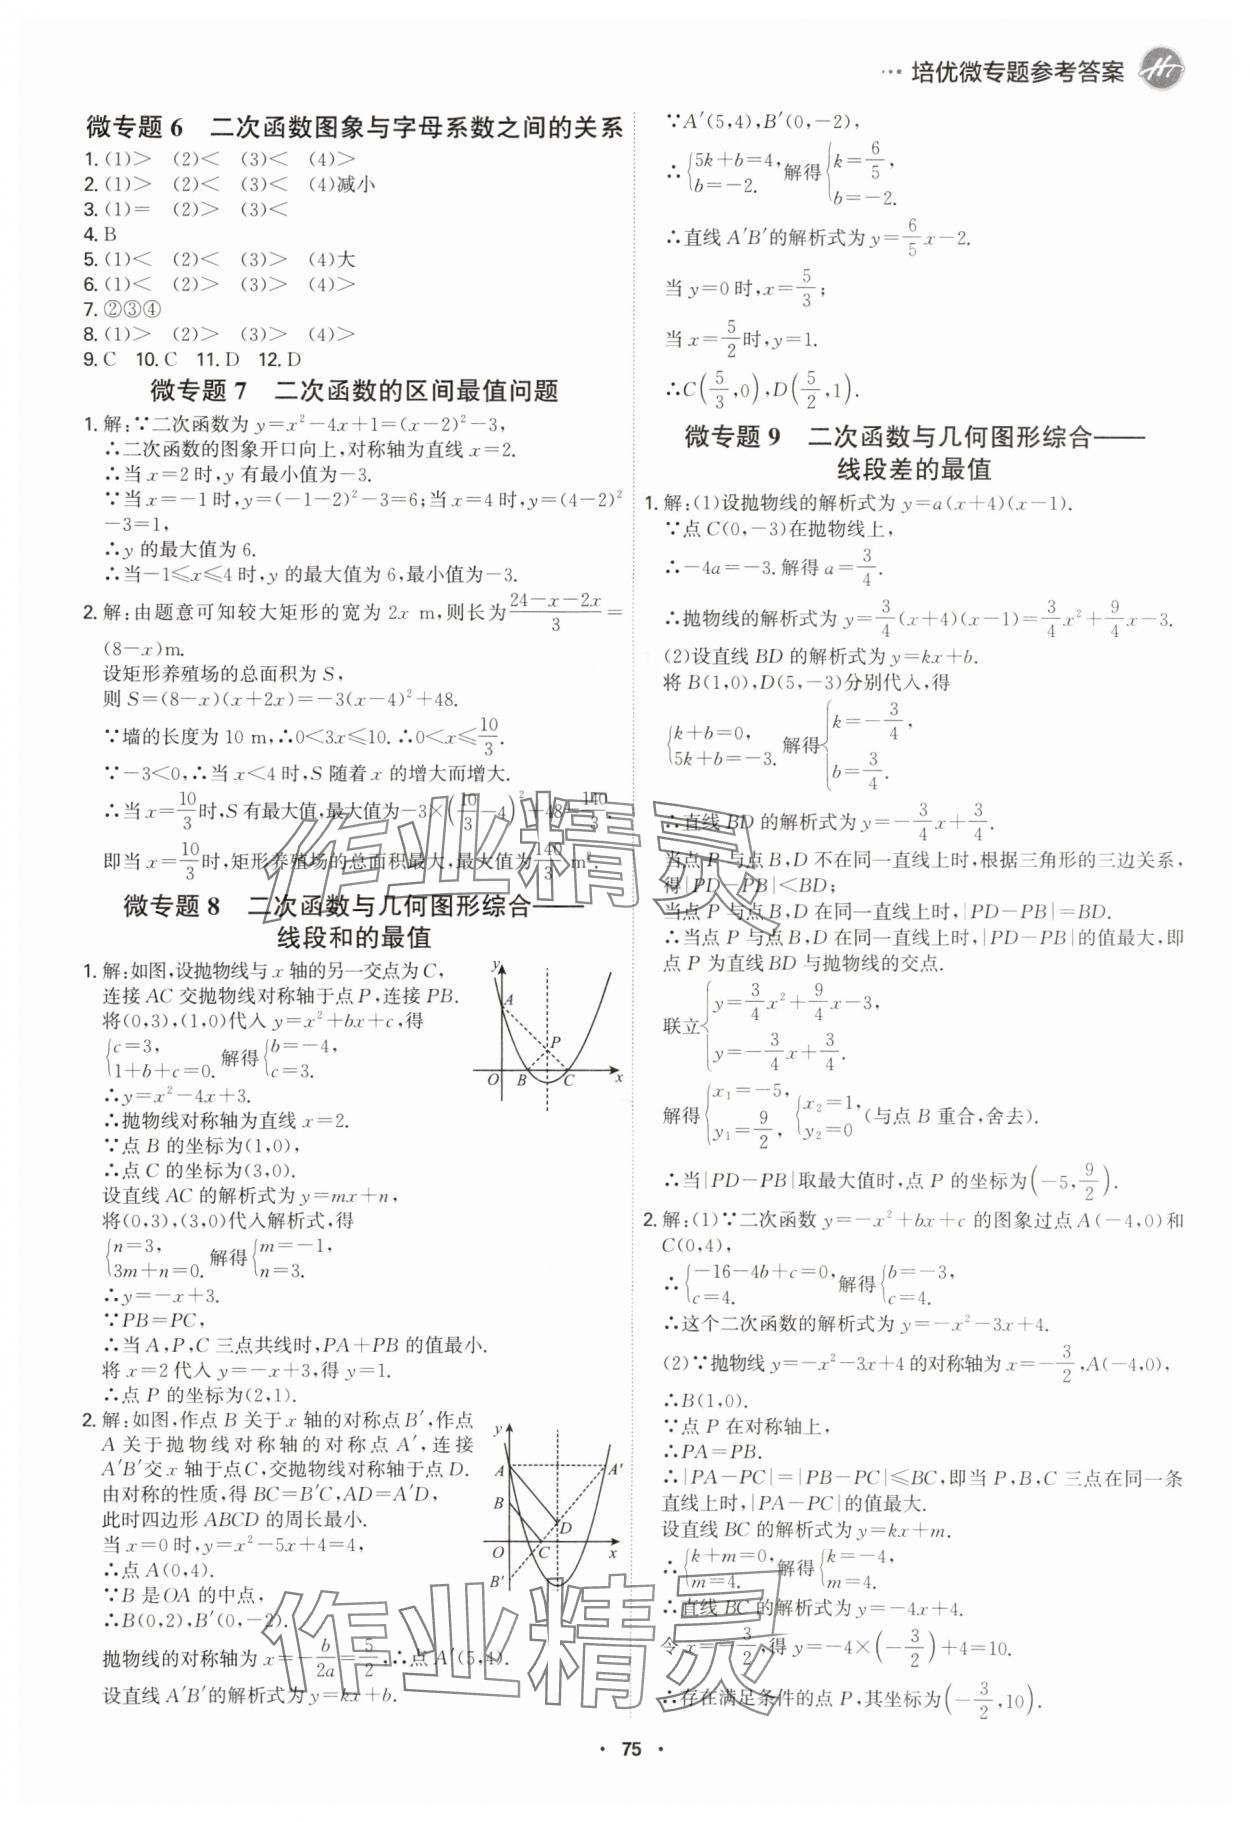 … 培优微专题参考答案
微专题 6 二次函数图象与字母系数之间的关系
1. (1)> (2)< (3)< (4)>
2. (1)> (2)< (3)< (4)减小
3. (1)= (2)> (3)<
4. B
5. (1)< (2)< (3)> (4)大
6. (1)< (2)> (3)> (4)>
7. ②③④
8. (1)> (2)> (3)> (4)>
9. C 10. C 11. D 12. D
微专题 7 二次函数的区间最值问题
1. 解:∵二次函数为 y=x²-4x+1=(x-2)²-3,
∴二次函数的图象开口向上,对称轴为直线 x=2.
∴当 x=2 时,y 有最小值为-3.
∵当 x=-1 时,y=(-1-2)²-3=6;当 x=4 时,y=(4-2)²
-3=1,
∴y 的最大值为 6.
∴当-1≤x≤4 时,y 的最大值为 6,最小值为-3.
2. 解:由题意可知较大矩形的宽为 2x m,则长为(24-x-2x)/3=
(8-x)m.
设矩形养殖场的总面积为 S,
则 S=(8-x)(x+2x)=-3(x-4)²+48.
∵墙的长度为 10 m,∴0<3x≤10.∴0<x≤10/3.
∵-3<0,∴当 x<4 时,S 随着 x 的增大而增大.
∴当 x=10/3时,S 有最大值,最大值为-3×(10/3-4)²+48=140/3.
即当 x=10/3时,矩形养殖场的总面积最大,最大值为140/3 m².
微专题 8 二次函数与几何图形综合——
线段和的最值
1. 解:如图,设抛物线与 x 轴的另一交点为 C,
连接 AC 交抛物线对称轴于点 P,连接 PB.
将(0,3),(1,0)代入 y=x²+bx+c,得
{c=3, 1+b+c=0. 解得{b=-4, c=3.
∴y=x²-4x+3.
∴抛物线对称轴为直线 x=2.
∵点 B 的坐标为(1,0),
∴点 C 的坐标为(3,0).
设直线 AC 的解析式为 y=mx+n,
将(0,3),(3,0)代入解析式,得
{n=3, 3m+n=0. 解得{m=-1, n=3.
∴y=-x+3.
∵PB=PC,
∴当 A,P,C 三点共线时,PA+PB 的值最小.
将 x=2 代入 y=-x+3,得 y=1.
∴点 P 的坐标为(2,1).
y
A
P
O B C x
2. 解:如图,作点 B 关于 x 轴的对称点 B′,作点
A 关于抛物线对称轴的对称点 A′,连接
A′B′交 x 轴于点 C,交抛物线对称轴于点 D.
由对称的性质,得 BC=B′C,AD=A′D,
此时四边形 ABCD 的周长最小.
当 x=0 时,y=x²-5x+4=4,
∴点 A(0,4).
∵B 是OA 的中点,
∴B(0,2),B′(0,-2).
抛物线的对称轴为 x=-b/2a=5/2,∴点 A′(5,4).
设直线 A′B′的解析式为 y=kx+b.
y
A A′
B
D
O C x
B′
∵A′(5,4),B′(0,-2),
∴{5k+b=4, b=-2. 解得{k=6/5, b=-2.
∴直线 A′B′的解析式为 y=6/5x-2.
当 y=0 时,x=5/3;
当 x=5/2时,y=1.
∴C(5/3,0),D(5/2,1).
微专题 9 二次函数与几何图形综合——
线段差的最值
1. 解:(1)设抛物线的解析式为 y=a(x+4)(x-1).
∵点 C(0,-3)在抛物线上,
∴-4a=-3. 解得 a=3/4.
∴抛物线的解析式为 y=3/4(x+4)(x-1)=3/4x²+9/4x-3.
(2)设直线 BD 的解析式为 y=kx+b.
将 B(1,0),D(5,-3)分别代入,得
{k+b=0, 5k+b=-3. 解得{k=-3/4, b=3/4.
∴直线 BD 的解析式为 y=-3/4x+3/4.
当点 P 与点 B,D 不在同一直线上时,根据三角形的三边关系,
得|PD-PB|<BD;
当点 P 与点 B,D 在同一直线上时,|PD-PB|=BD.
∴当点 P 与点 B,D 在同一直线上时,|PD-PB|的值最大,即
点 P 为直线 BD 与抛物线的交点.
联立{y=3/4x²+9/4x-3, y=-3/4x+3/4.
解得{x₁=-5, y₁=9/2, {x₂=1, y₂=0(与点 B 重合,舍去).
∴当|PD-PB|取最大值时,点 P 的坐标为(-5,9/2).
2. 解:(1)∵二次函数 y=-x²+bx+c 的图象过点 A(-4,0)和
C(0,4),
∴{-16-4b+c=0, c=4. 解得{b=-3, c=4.
∴这个二次函数的解析式为 y=-x²-3x+4.
(2)∵抛物线 y=-x²-3x+4 的对称轴为 x=-3/2,A(-4,0),
∴B(1,0).
∵点 P 在对称轴上,
∴PA=PB.
∴|PA-PC|=|PB-PC|≤BC,即当 P,B,C 三点在同一条
直线上时,|PA-PC|的值最大.
设直线 BC 的解析式为 y=kx+m.
∴{k+m=0, m=4. 解得{k=-4, m=4.
∴直线 BC 的解析式为 y=-4x+4.
令 x=-3/2,得 y=-4×(-3/2)+4=10.
∴存在满足条件的点 P,其坐标为(-3/2,10).
· 75 ·
作业精灵
作业精灵